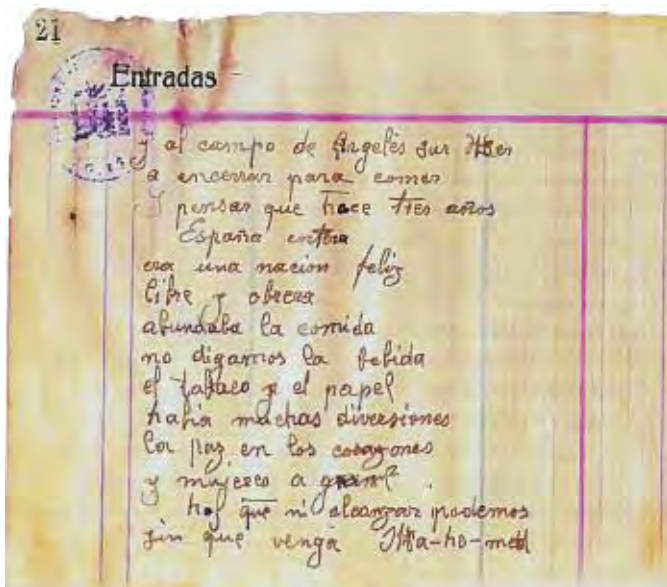 21
Entradas
y al campo de Argeles sur Mer
a encerrar para comer
y pensar que hace tres años
España entera
era una nacion feliz
libre y obrera
abundaba la comida
no digamos la bebida
el tabaco y el papel
habia muchas diversiones
la paz en los corazones
y mujeres a granel
y hoy que ni alcanzar podemos
sin que venga Ma-ho-med